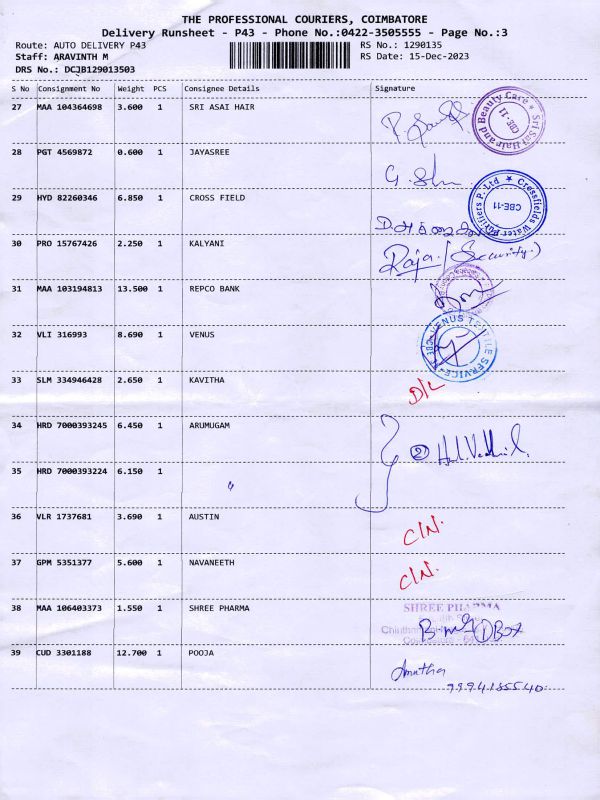 THE PROFESSIONAL COURIERS, COIMBATORE
Delivery Runsheet - P43 - Phone No.:0422-3505555 - Page No.:3
Route: AUTO DELIVERY P43
RS No.: 1290135
Staff: ARAVINTH M
RS Date: 15-Dec-2023
DRS No.: DCJB129013503
S No Consignment No Weight PCS Consignee Details Signature
27 MAA 104364698 3.600 1 SRI ASAI HAIR
Sri Sai Hair and Beauty Care
CBE-11
28 PGT 4569872 0.600 1 JAYASREE
29 HYD 82260346 6.850 1 CROSS FIELD
Crossfields Water Purifiers P. Ltd
CBE-11
30 PRO 15767426 2.250 1 KALYANI Raja. (Security.)
31 MAA 103194813 13.500 1 REPCO BANK
32 VLI 316993 8.690 1 VENUS
VENUS TEXTILE SERVICE CBE
33 SLM 334946428 2.650 1 KAVITHA D/L
34 HRD 7000393245 6.450 1 ARUMUGAM
2
35 HRD 7000393224 6.150 1 "
36 VLR 1737681 3.690 1 AUSTIN C/N.
37 GPM 5351377 5.600 1 NAVANEETH C/N.
38 MAA 106403373 1.550 1 SHREE PHARMA SHREE PHARMA
1 Box
39 CUD 3301188 12.700 1 POOJA Amutha
9994185540